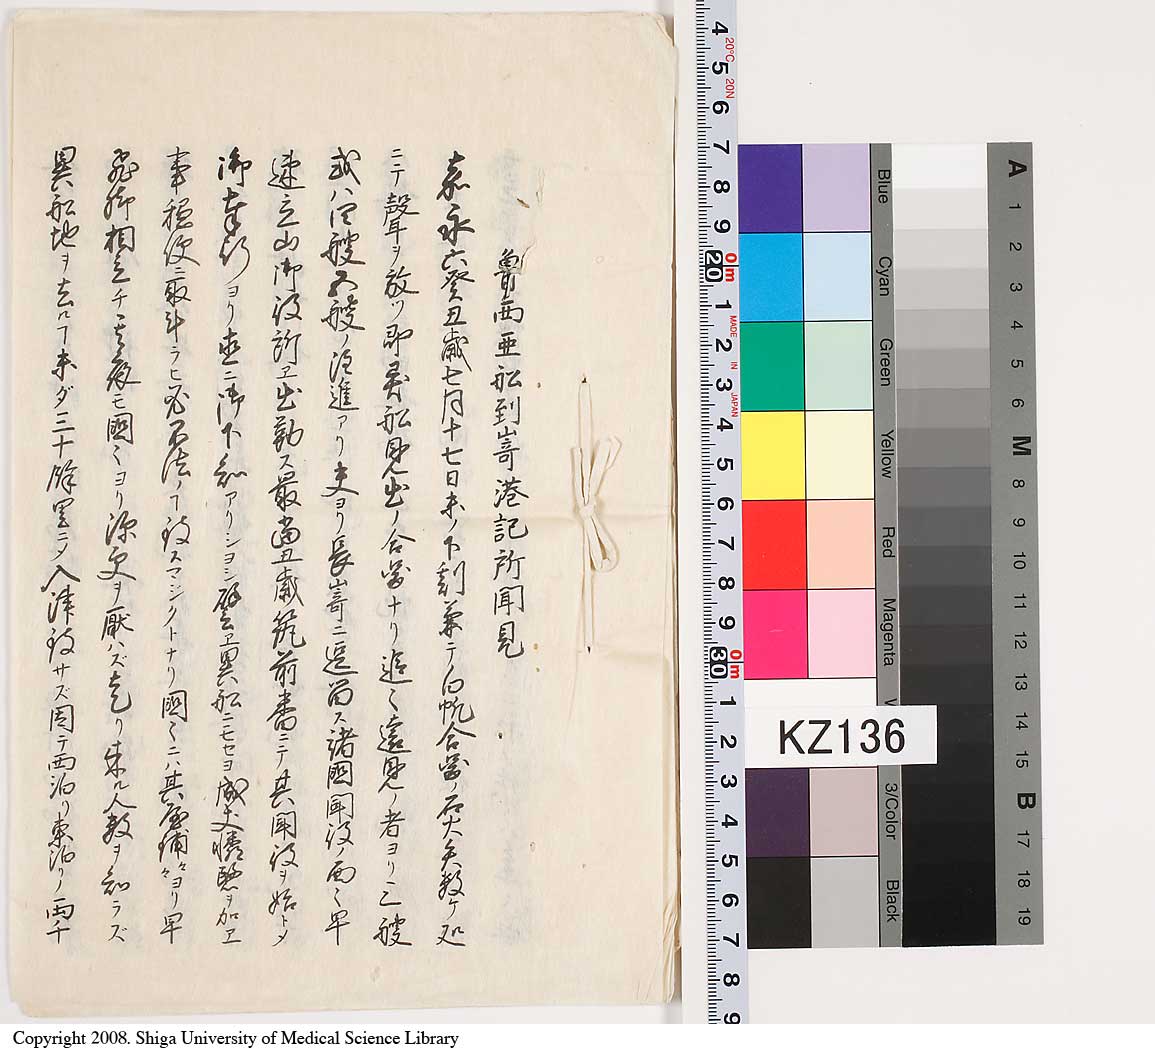 魯西亜舩到嵜港記所聞見
嘉永六癸丑歳七月十七日未ノ下刻兼テノ白帆合図ノ石火矢数ケ処
ニテ聲ヲ放ツ即異舩見出ノ合図ナリ追々遠見ノ者ヨリ三艘
或ハ四艘五艘ノ注進アリ夫ヨリ長嵜ニ逗留ス諸國聞役ノ面々早
速立山御役所ヱ出勤ス最當丑歳筑前番ニテ其聞役ヲ始トメ
御奉行ヨリ直ニ御下知アリシヨシ譬ヱ異舩ニモセヨ成丈憐愍ヲ加ヱ
事穏便ニ取斗ラヒ必不法ノヿ致スマジクトナリ國々ニハ其屋鋪々々ヨリ早
飛脚相立チ其夜モ國々ヨリ深更ヲ厭ハズ走リ来ル人数ヲ知ラズ
異舩地ヲ去ルヿ未ダ三十餘里ニメ入津致サズ固テ西泊リ東泊リノ両千
KZ136
Blue
Cyan
Green
Yellow
Red
Magenta
3/Color
Black
A
1
2
3
4
5
6
M
8
9
10
11
12
13
14
15
B
17
18
19
4 5 6 7 8 9 20 1 2 3 4 5 6 7 8 9 30 1 2 3 4 5 6 7 8 9
20°C
20N
0m
MADE IN JAPAN
0m
Copyright 2008. Shiga University of Medical Science Library